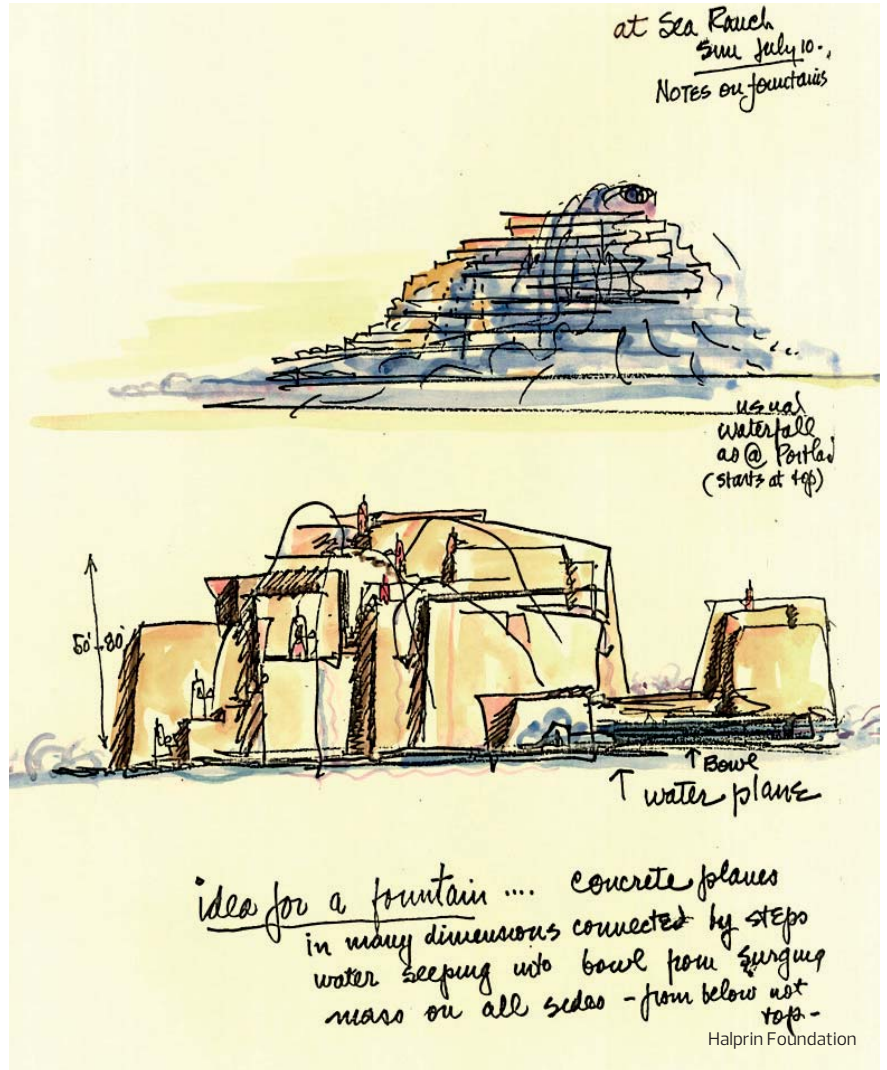 at Sea Ranch
Sun July 10.,
NOTES on fountains
usual
waterfall
as @ Portlad
(starts at top)
50'-80'
↑ Bowl
↑ water plane
idea for a fountain .... concrete planes
in many dimensions connected by steps
water seeping into bowl from surging
mass on all sides - from below not
top -
Halprin Foundation